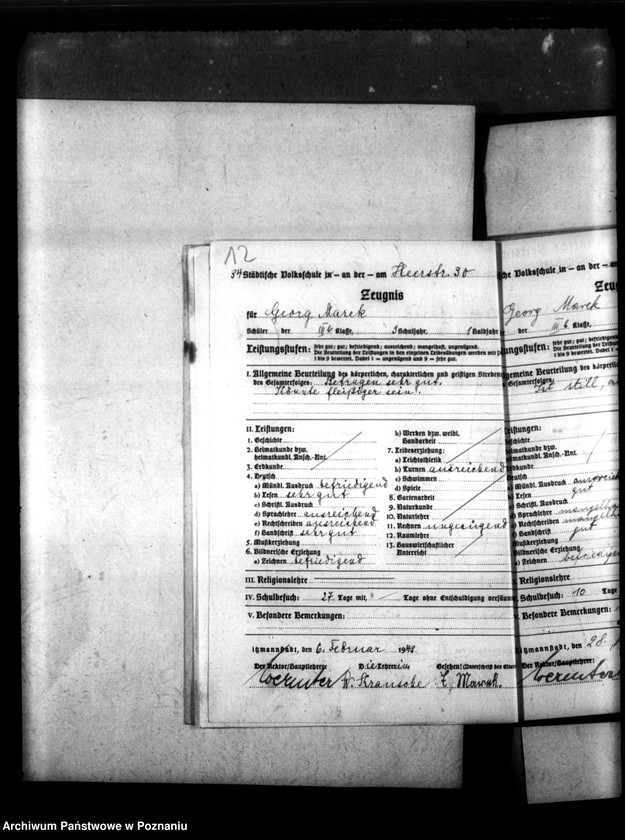 12
34 Städtische Volksschule in – an der – am Heerstr. 30
Zeugnis
für Georg Marek
Schüler der III b. Klasse, 3 Schuljahr, 1 Halbjahr
Leistungsstufen: sehr gut; gut; befriedigend; ausreichend; mangelhaft, ungenügend.
Die Beurteilung der Leistungen in den einzelnen Leibesübungen werden mit
1 bis 9 bewertet. Dabei 1 = ungenügend und 9 = sehr gut.
I. Allgemeine Beurteilung des körperlichen, charakterlichen und geistigen Strebens
des Gesamterfolges: Betragen sehr gut.
Könnte fleißiger sein!
II. Leistungen:
1. Geschichte
2. Heimatkunde bzw.
heimatkundl. Ansch.-Unt.
3. Erdkunde
4. Deutsch
a) Mündl. Ausdruck befriedigend
b) Lesen sehr gut
c) Schriftl. Ausdruck
d) Sprachlehre ausreichend
e) Rechtschreiben ausreichend
f) Handschrift sehr gut
5. Musikerziehung
6. Bildnerische Erziehung
a) Zeichnen befriedigend
b) Werken bzw. weibl.
Handarbeit
7. Leibeserziehung:
a) Leichtathletik
b) Turnen ausreichend
c) Schwimmen
d) Spiele
8. Gartenarbeit
9. Naturkunde
10. Naturlehre
11. Rechnen ungenügend
12. Raumlehre
13. Hauswirtschaftlicher
Unterricht
III. Religionslehre
IV. Schulbesuch: 27 Tage mit, Tage ohne Entschuldigung versäumt
V. Besondere Bemerkungen:
itzmannstadt, den 6. Februar 1943
Der Rektor/Hauptlehrer: Die Lehrerin Gesehen! (Unterschrift der
W. Kransche
che Volksschule in – an der – am
Zeug
Georg Marek
der III b. Klasse,
ungsstufen:
sehr gut; gut; befriedigend;
Die Beurteilung der Leistungen
1 bis 9 bewertet. Dabei 1
gemeine Beurteilung des körperlichen
Gesamterfolges: Ist still, a
Leistungen:
Geschichte
Erdkunde
Deutsch
Mündl. Ausdruck
Lesen gut
Schriftl. Ausdruck
Sprachlehre
Rechtschreiben
Handschrift gut
Musikerziehung
Bildnerische Erziehung
Zeichnen
Religionslehre
Schulbesuch: 10 Tage
Besondere Bemerkungen:
itzmannstadt, den 28.
Der Rektor/Hauptlehrer:
Archiwum Państwowe w Poznaniu